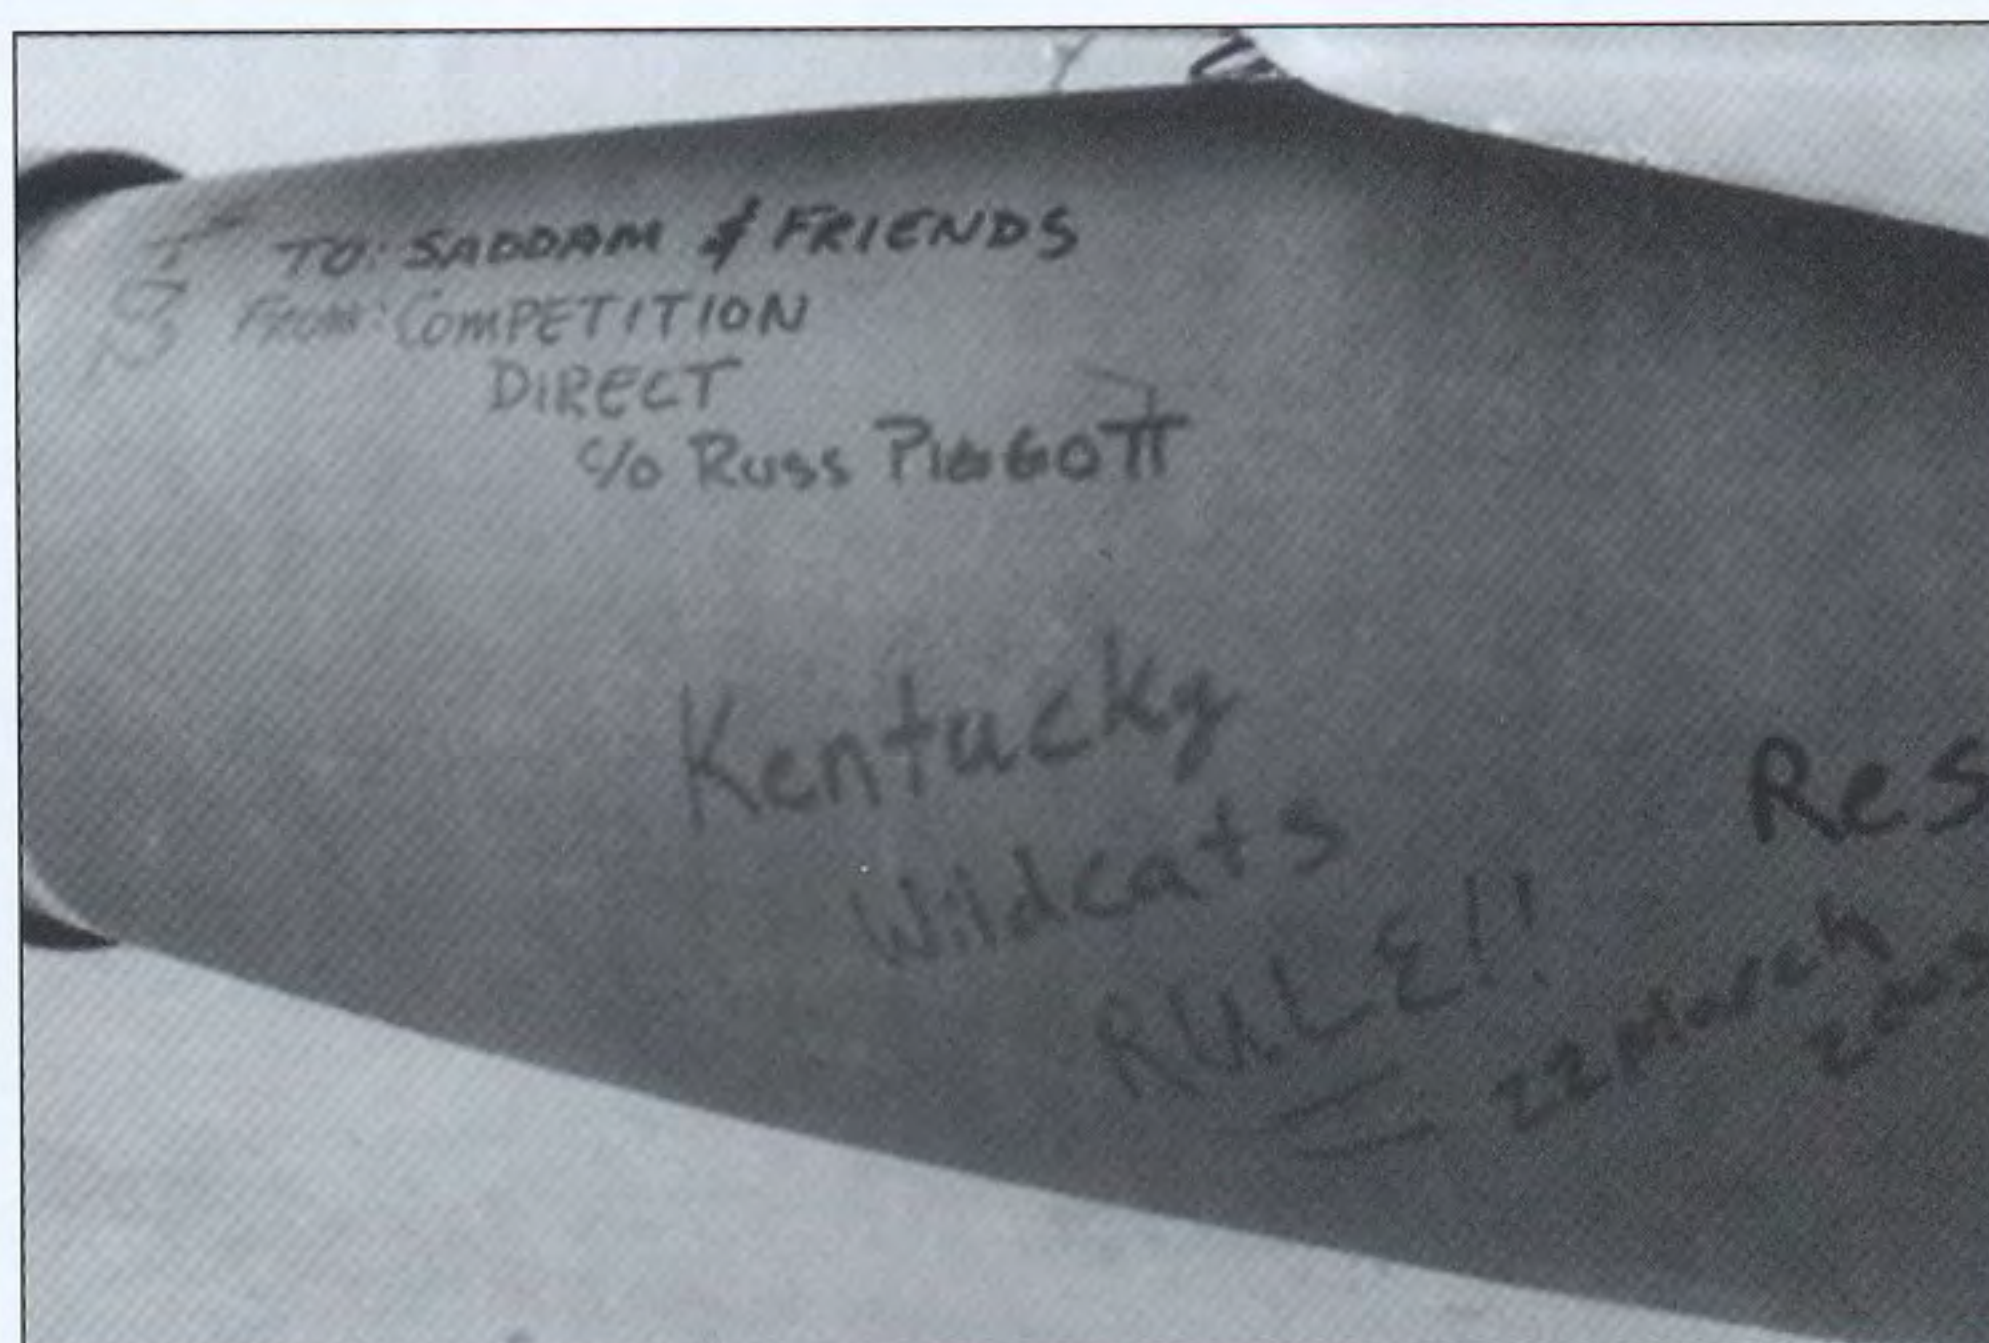 TO: SADDAM & FRIENDS
FROM: COMPETITION
DIRECT
c/o RUSS PIGGOTT
Kentucky
Wildcats
RULE!!
22 March
2003
Res